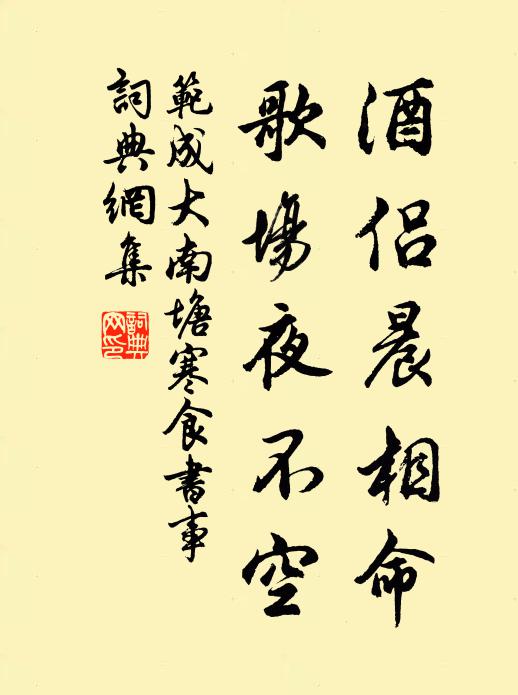 酒侶晨相命
歌場夜不空
範成大南塘寒食書事
詞典網集
詞典
网印